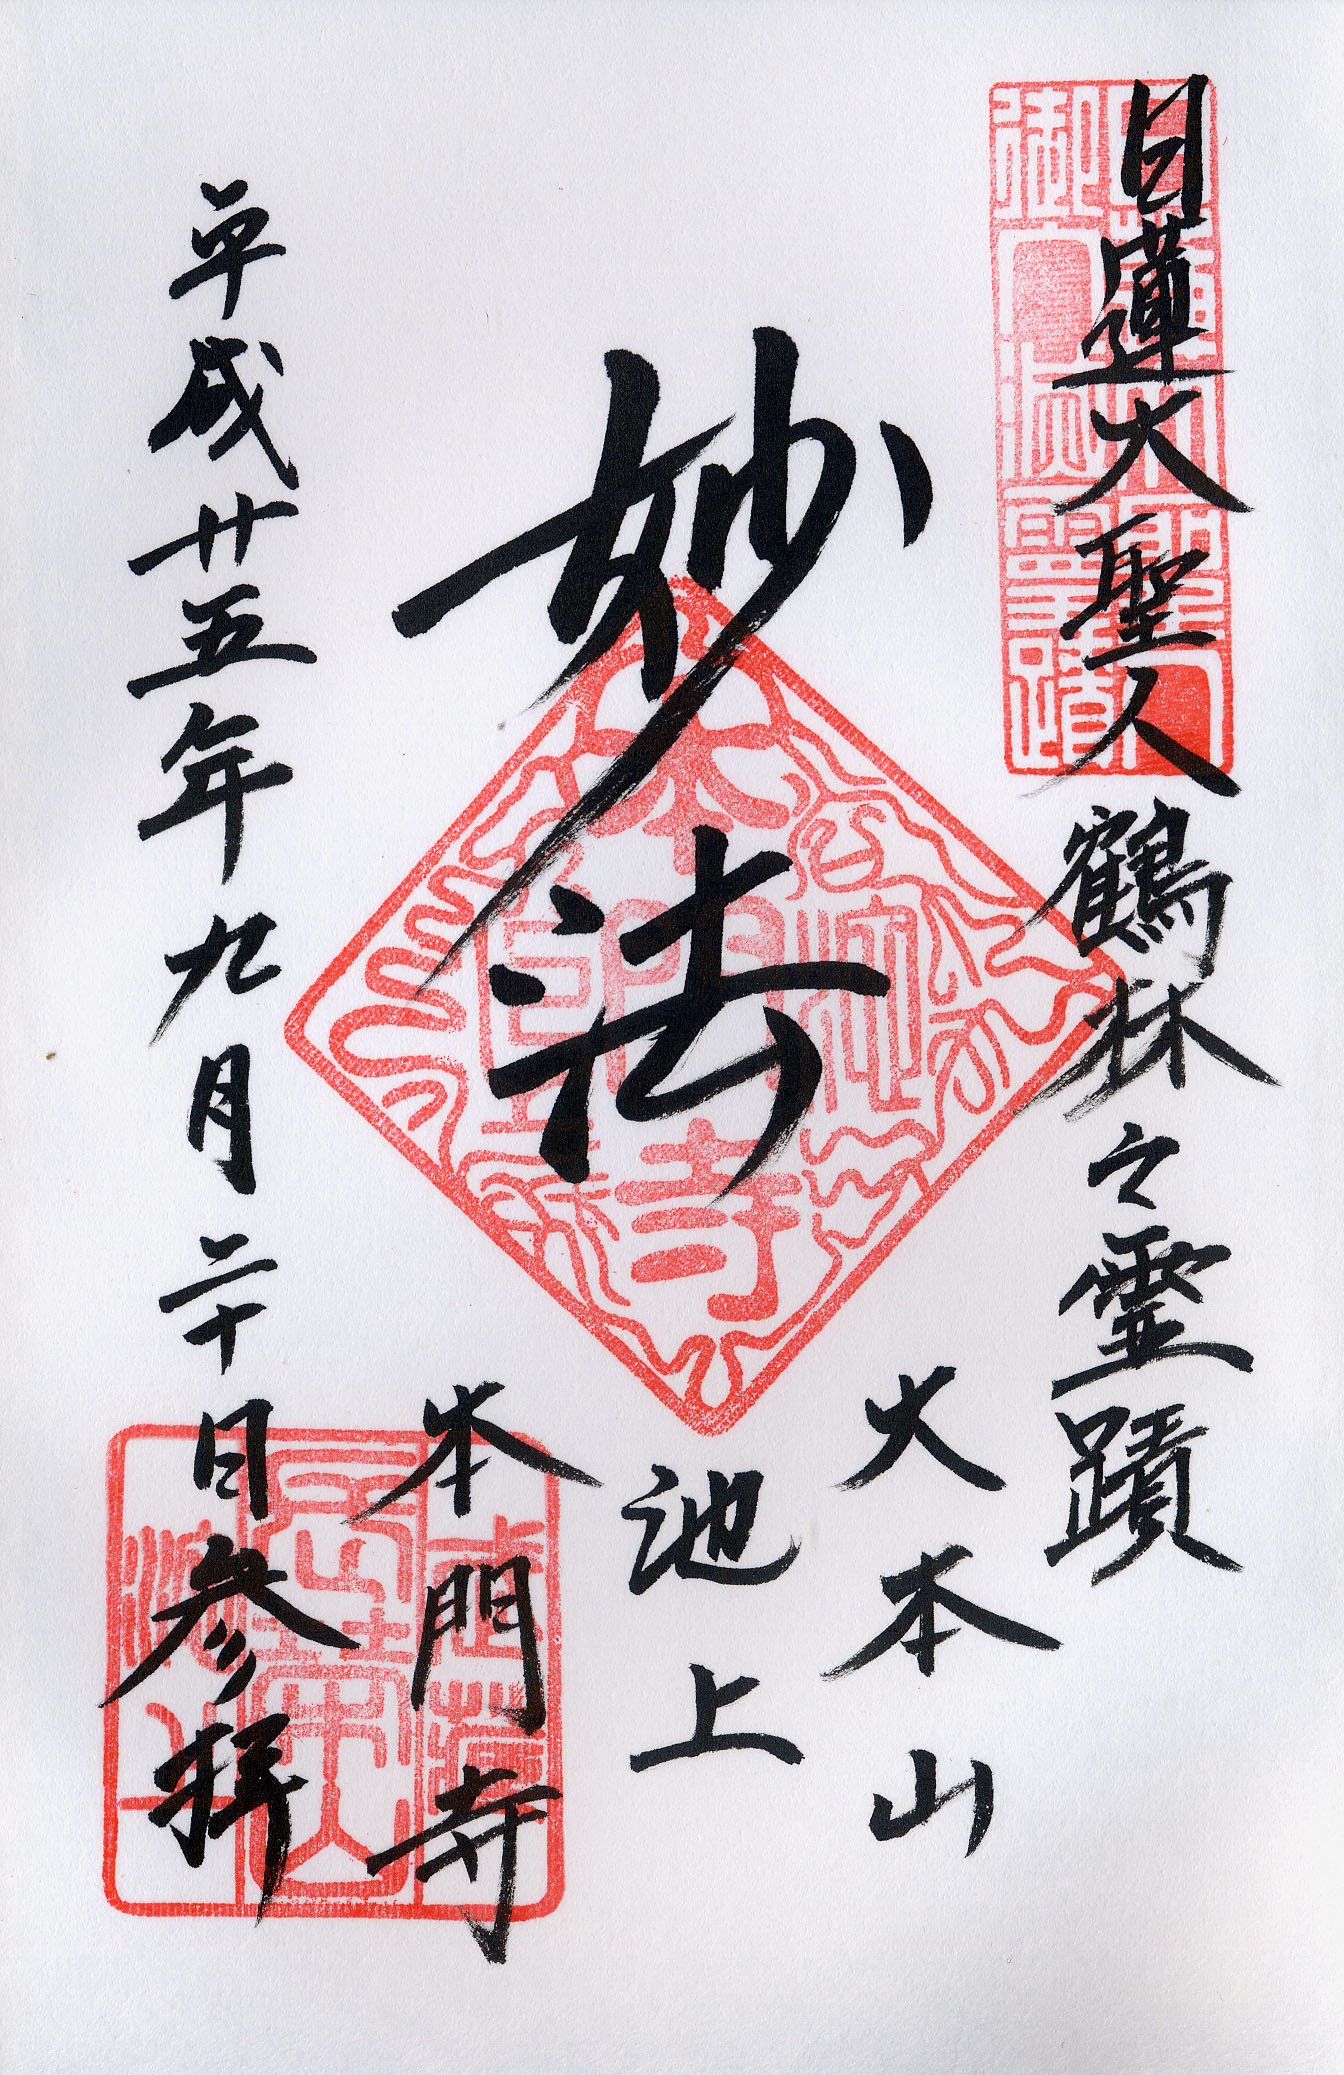 日蓮大聖人鶴林之霊蹟
妙法
大本山
池上
本門寺
平成廿五年九月二十日参拝
日蓮大聖人
御入滅霊蹟